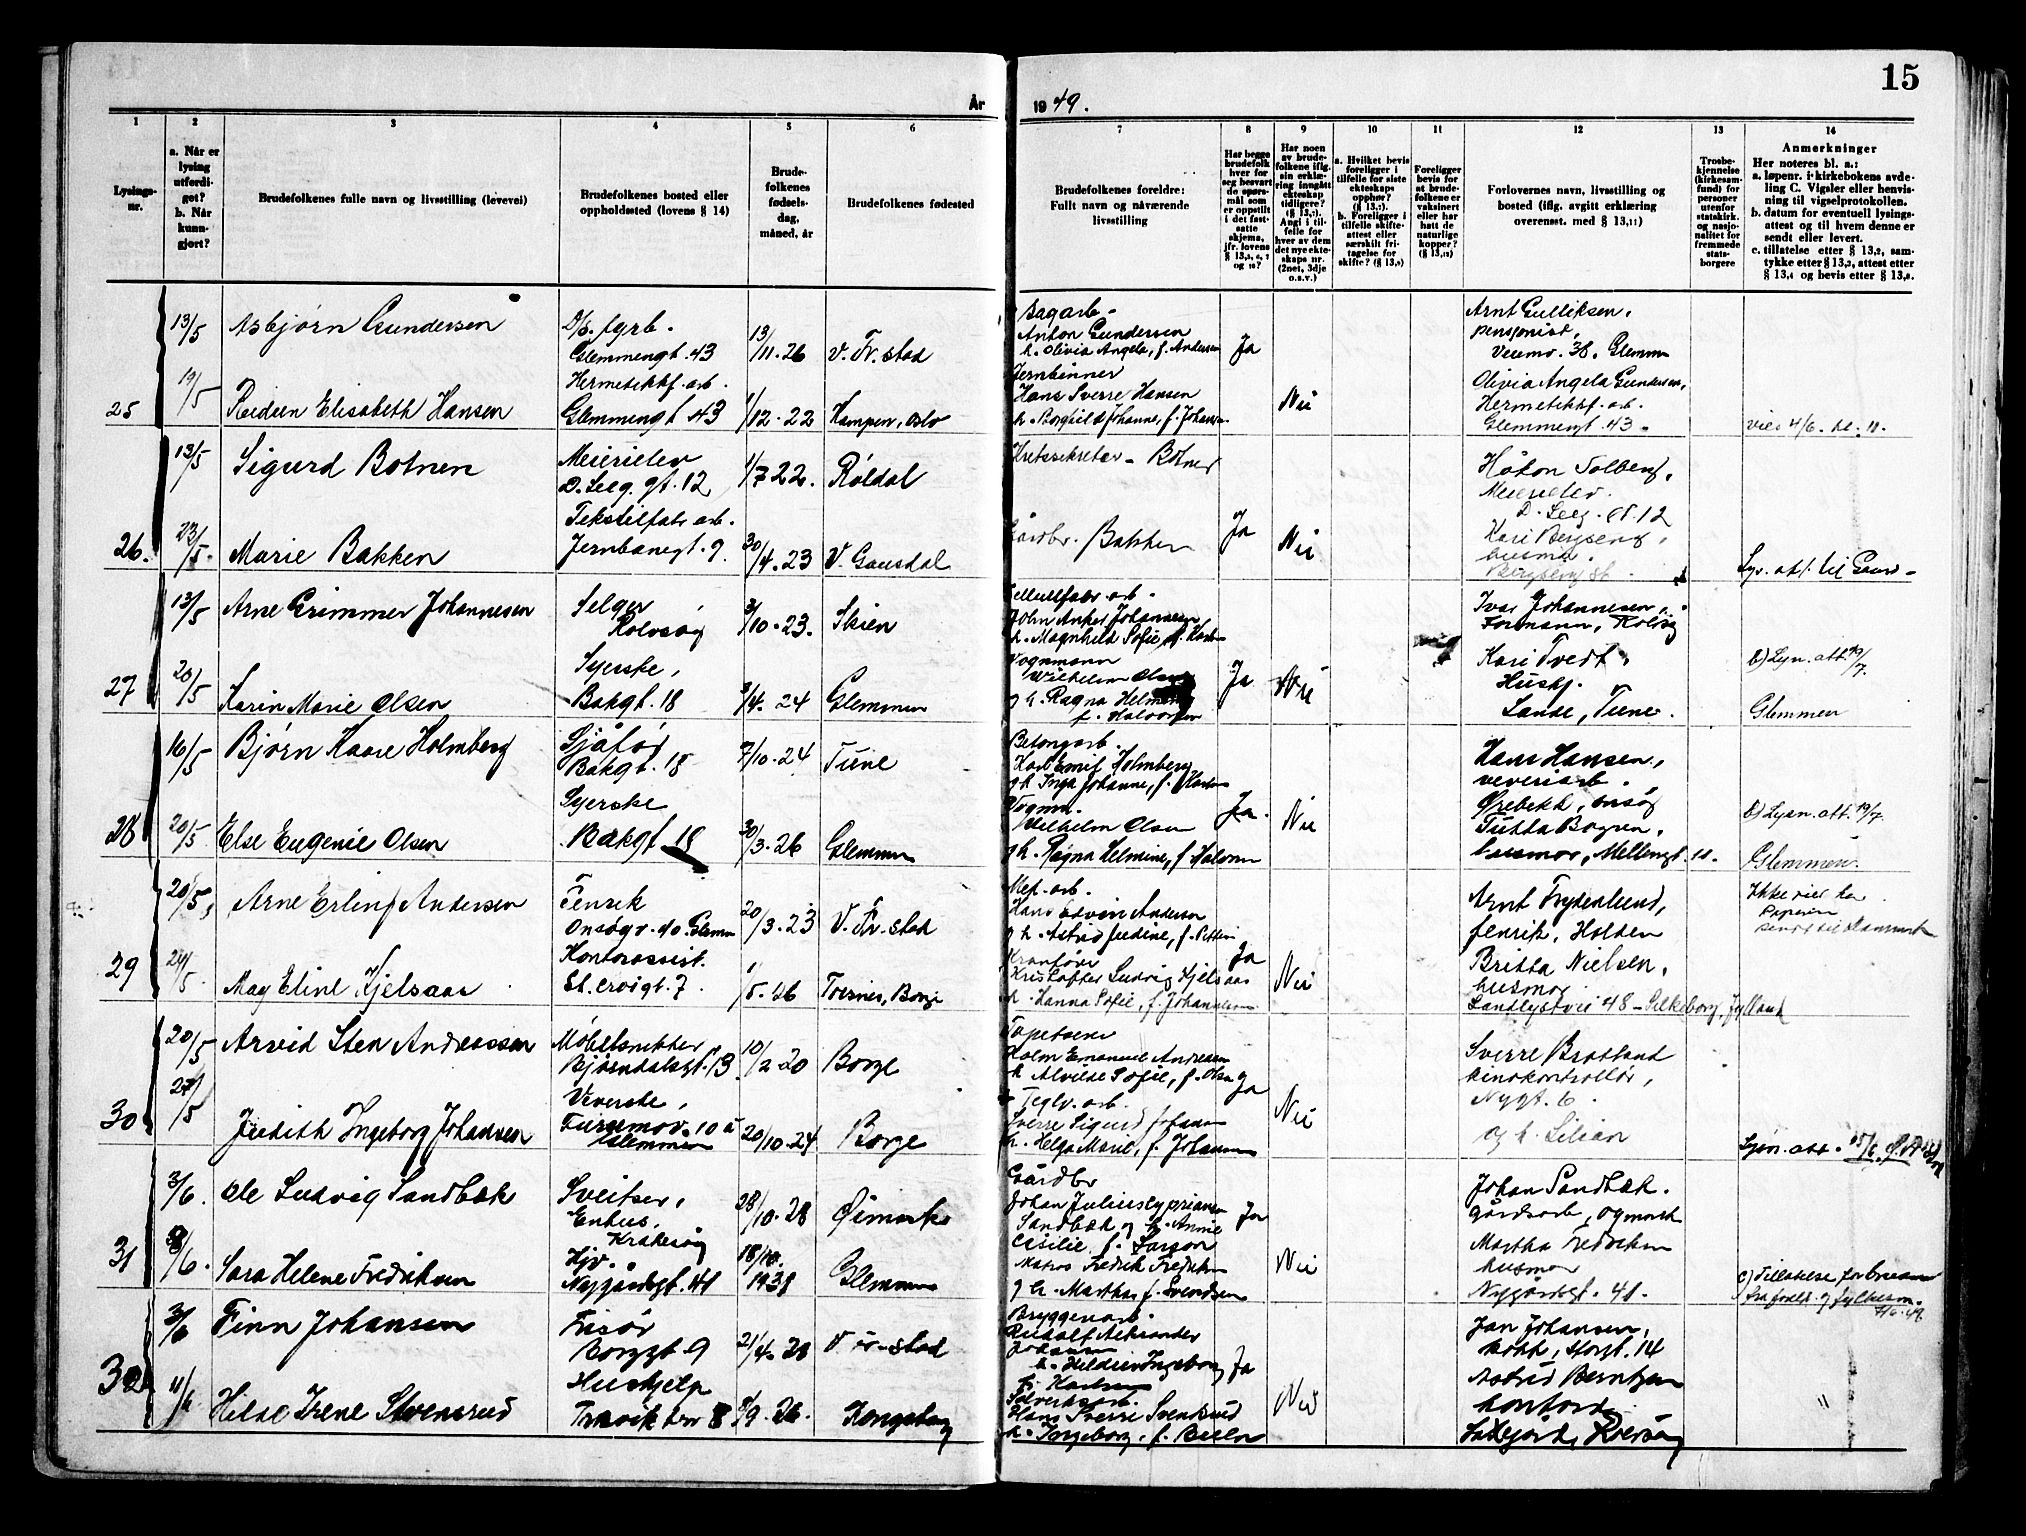 15
År
19 49.
1
2
3
4
5
6
7
8
9
10
11
12
13
14
Lysings-
nr.
a. Når er
lysing
utferdi-
get?
b. Når
kunn-
gjort?
Brudefolkenes fulle navn og livsstilling (levevei)
Brudefolkenes bosted eller
oppholdssted (lovens § 14)
Brude-
folkenes
fødsels-
dag,
måned, år
Brudefolkenes fødested
Brudefolkenes foreldre:
Fullt navn og nåværende
livsstilling
Har begge
brudefolk
hver for
seg besvart
de spørs-
mål som
er oppstilt
i det fast-
satte
skjema,
jfr. lovens
Har noen
av brude-
folkene iflg.
sin erklæ-
ring inngått
ekteskap
tidligere?
(§ 13,7).
Angi i til-
felle for
hver av dem
det nye ekte-
skaps nr.
(2net, 3dje
o.s.v.)
a. Hvilket bevis
foreligger i
tilfelle for siste
ekteskaps
opphør?
(§ 13,7).
b. Foreligger i
tilfelle skifte-
attest eller
særskilt fri-
tagelse for
skifte? (§ 13,9)
Foreligger
bevis for
at brude-
folkene er
vaksinert
eller har
hatt de
naturlige
kopper?
(§ 13,12)
Forlovernes navn, livsstilling og
bosted (iflg. avgitt erklæring
overensst. med § 13,11)
Trosbe-
kjennelse
(kirkesam-
fund) for
personer
utenfor
statskirk.
og nasjo-
nalitet for
fremmede
stats-
borgere
Anmerkninger
Her noteres bl. a.:
a. løpenr. i kirkebokens avde-
ling C. Vigsler eller henvis-
ning til vigselprotokollen.
b. datum for eventuell lysings-
attest og til hvem denne er
sendt eller levert.
c. tillatelse etter § 13,2, sam-
tykke etter § 13,3, attest etter
§ 13,4 og bevis etter § 13,8.
25
13/5
Asbjørn Gundersen
D/s. fyrb.
Glemmengt. 43
13/11-26
V. Fr. stad
Sagarb.
Anton Gundersen
h. Olivia Angela, f. Andersen
Ja
Arnt Gulliksen,
pensjonist,
Veumv. 38. Glemm
19/5
Reidun Elisabeth Hansen
Hermetikkf. arb.
Glemmengt 43
1/12-22
Kampen, Oslo
Jernbinner
Hans Sverre Hansen
h. Borghild Johanne, f. Johansen
Nei
Olivia Angela Gundersen,
Hermetikkf. arb.
Glemmengt. 43.
Vies 4/6. kl. 11.
26.
13/5
Sigurd Botnen
Meierielev
D. Seeg. gt. 12
1/7 22.
Røldal
Kretssekretær - Botner
Ja
Håkon Solberg,
Meierielev.
D. Seeg. gt. 12
23/5
Marie Bakken
Tekstilfabr arb.
Jernbanegt. 9
30/4-23
V. Gausdal
Gårdbr. Bakken
Nei
Kari Bergseng,
husmor.
Lys. att. til Gausd-
27
13/5
Arne Grimmer Johannesen
Selger
Rolvsøy
3/10-23.
Skien
Cellullfabr arb.
John Anker Johannesen
h. Magnhild Sofie, f. Karls
Ja
Ivar Johannesen,
Formann, Rolvsøy
20/5
Karin Marie Olsen
Syerske,
Bakgt. 18
3/4-24
Glemmen
Vognmann
Wilhelm Olsen
g h. Ragna Helmine
f. Halvorsen
Nei
Kari Tvedt,
Hushj.
Sande, Tune.
b) Lysn. att. 19/7.
Glemmen
28
16/5
Bjørn Kaare Holmberg
Sjåfør
Bakgt. 18
7/10-24
Tune
Betongarb.
Karl Emil Holmberg
g h. Inga Johanne, f. Karls
Ja.
Hans Hansen,
veveriarb.
Ørebekk, Onsøy
20/5
Else Eugenie Olsen
Syerske
Bakgt 18
30/3-26
Glemmen
Vognm.
Wilhelm Olsen
g h. Ragna Helmine, f. Halvorsen
Nei
Tutta Bogen,
husmor, Mellemgt. 11.
b) Lysn. att. 19/7.
Glemmen.
29
20/5
Arne Erling Andersen
Fenrik
Onsøgv. 40. Glemm
20/3-23
V. Fr. stad
Mek. arb.
Hans Edvin Andersen
g h. Astrid Jeedine, f. Petters
Ja
Arnt Frydenlund,
fenrik, Holden
Ikke vier her
Papirene
sendt til Danmark
24/5
May Eline Kjelsaas
Kontorassist.
St. croixgt. 7
1/5-26
Torsnes, Borge
Kranfører
Kristoffer Ludvig Kjelsaas
h. Hanna Sofie, f. Johannesen
Nei
Britta Nielsen,
husmor
Sandlystvei 48 - Silkeborg, Jylland
30
20/5
Arvid Sten Andreassen
Møbelsnekker
Bjørndalsgt. 13
10/2-20
Borge
Tapetserer
Holm Emanuel Andreassen
h Alvilde Sofie, f. Olsen
Ja
Sverre Bratland
kinokontrollør,
Nygt. 6.
27/5
Judith Ingeborg Johansen
Veverske,
Furumov. 10 a
Glemmen
20/10-24
Borge
Teglv. arb.
Sverre Sigurd Johansen
h. Helga Marie, f. Johansen
Nei
og h. Lilian
Lysn. att. 15/6.
31
3/6.
Ole Ludvig Sandbæk
Sveitser,
Enhus,
Kråkerøy
28/10-28
Øimark
Gårdbr
Johan Julius Cyprian
Sandbæk og h. Annie
Cecilie f. Larson
Ja
Johan Sandbæk.
gårdsarb, Ogmark
8/6.
Sara Helene Fredriksen
Hjv.
Nygårdsgt. 41
18/10.
1931
Glemmen
Matros Fredrik Fredriksen
g h. Martha f. Svendsen
Nei
Martha Fredriksen
husmor
Nygårdsgt. 41.
c) Tillatelse for bruden
fra foreld. og fylkesm.
32
3/6
Finn Johansen
Frisør
Borggt 9
21/4-28
Bryggearb.
Rudolf Aleksander
Johansen
h. Hildur Ingeborg
f. Karlsen
Ja
Jan Johansen,
kokk, Storgt. 14
11/6
Hilde Irene Svensrud
Hushjelp
Trosvikbrv 8
8/9-26.
Kongsberg
Sølverksarb.
Hans Sverre Svensrud
h. Ingeborg. f. Beelen
Nei
Astrid Berntzen
kontord.
Lakkegård, Rolvsøy